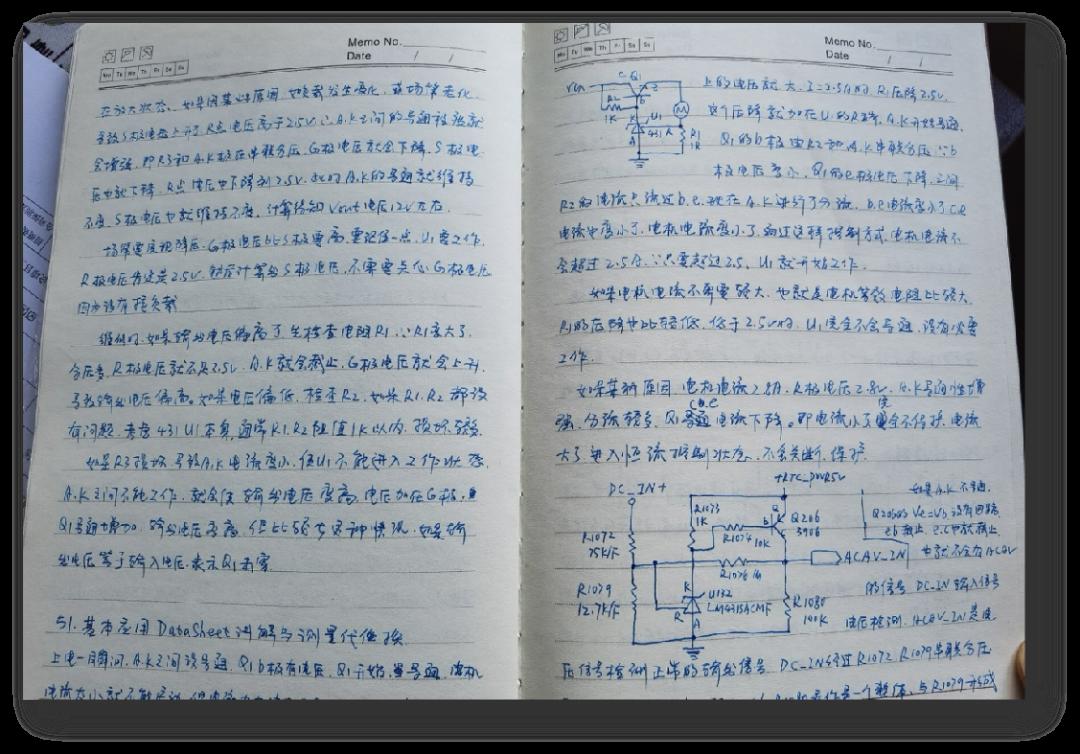 Memo No.
Date / /
Mo Tu We Th Fr Sa Su
在放大状态。如果因某些原因,如负载发生变化,或场管老化
导致S极电压上升,R点电压高于2.5V∴A.K之间的导通程度就
会增强,即R3和A.K极在串联分压,G极电压就会下降,S极电
压也就下降,R点电压也下降到2.5V.此时A.K的导通就维持
不变,S极电压也就维持不变,计算得知Vout电压12V左右。
场管要实现降压,G极电压比S极要高,要记住一点,U1要工作,
R极电压肯定是2.5V.然后计算出S极电压,不需要关心G极电压
因为没有接负载
维修时,如果输出电压偏高了,先检查电阻R1,∵R1变大了,
分压多,R极电压就不足2.5V.A.K就会截止,G极电压就会上升,
导致输出电压偏高。如果电压偏低,检查R2,如果R1.R2都没
有问题,考虑431 U1本身,通常R1.R2阻值1K以内,损坏较多
如果R3损坏,导致A.K电流变小,但U1不能进入工作状态,
A.K之间不能工作,就会使输出电压变高,电压加在G极,
Q1导通增加,输出电压变高,但比较少这种情况,如果输
出电压等于输入电压,表示Q1击穿
51.基本应用DataSheet讲解与测量代换
上电一瞬间,A.K之间没导通,Q1 b极有电压,Q1开始导通,电机
Memo No.
Date / /
Mo Tu We Th Fr Sa Su
Vin C Q1 e
R2 b
1K
K U1
431 R
A
M
R1
1R
上的电压就大,I=2.5A时,R1压降2.5V,
这个压降就加在U1的R端,A.K开始导通,
Q1的b极由R2和A.K串联分压∵b
极电压变小,Q1的e极电压下降,之间
R2的电流只流过b.e,现在A.K进行了分流,b.e电流变小了c.e
电流也变小了,电机电流变小了,通过这种控制方式,电机电流不
会超过2.5A,∵只要超过2.5,U1就开始工作。
如果电机电流不需要较大,也就是电机等效电阻比较大,
R1的压降也比较低,低于2.5V时,U1完全不会导通,没有必要
工作。
如果某种原因,电机电流2.8A,R极电压2.8V,A.K导通性增
强,分流较多,Q1导通c.e电流下降。即电流小了完全不保护,电流
大了,进入恒流控制状态,不会关断,保护
DC_IN+
+RTC_PWR5V
R1073
1K
b Q206
3906
R1074 10K
R1072
75K/F
ACAV_IN
R1076 1M
R1079
12.7K/F
K U132
R LM431SACMF
A
R1080
100K
如果A.K不导通,
Q206的Ve=Vb没有回路
eb截止,e.c也就截止
也就不会有ACAV
的信号,DC_IN输入信号
电压检测,ACAV_IN是电
压信号检测正常的输出信号,DC_IN经过R1072.R1079串联分压
是一个整体,与R1079形成